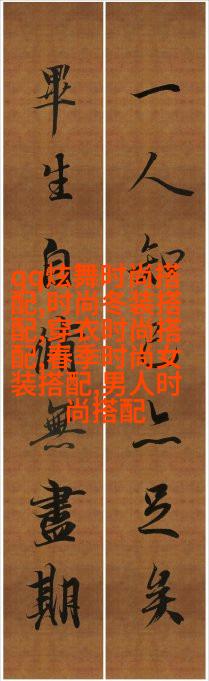 一人知己亦足矣
畢生自脩無盡期
qq炫舞时尚搭
配,时尚冬装搭
配,享衣时尚搭
配,春季时尚女
装搭配,男人时
尚搭配